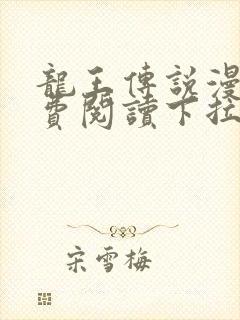 龍王傳說漫
費閱讀下拉
宋雪梅